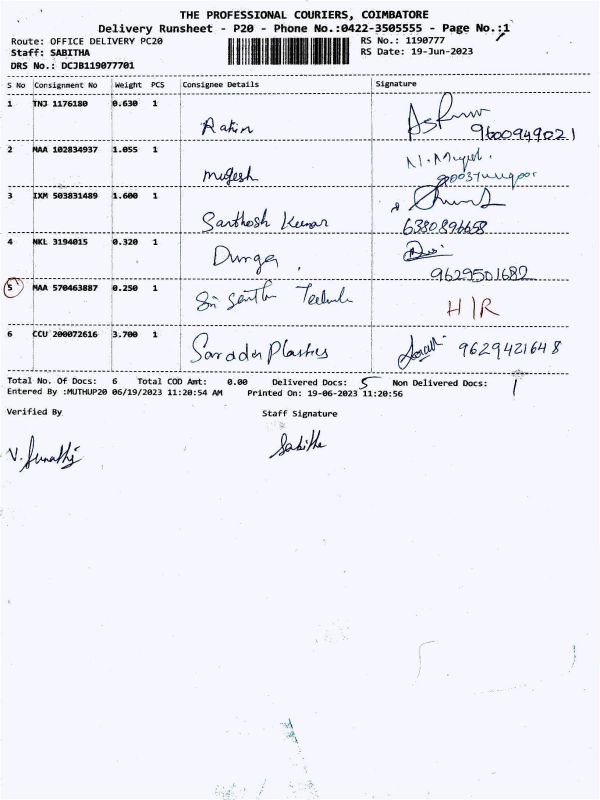 THE PROFESSIONAL COURIERS, COIMBATORE
Delivery Runsheet - P20 - Phone No.:0422-3505555 - Page No.:1
Route: OFFICE DELIVERY PC20 RS No.: 1190777
Staff: SABITHA RS Date: 19-Jun-2023
DRS No.: DCJB119077701
S No Consignment No Weight PCS Consignee Details Signature
1 TNJ 1176180 0.630 1
9600949021
2 MAA 102834937 1.055 1
mugesh
3 IXM 503831489 1.600 1
Santhosh Kumar 6380896658
4 NKL 3194015 0.320 1
Durga, 9629501682
5 MAA 570463887 0.250 1
H/R
6 CCU 200072616 3.700 1
Sarada Plastics 9629421648
Total No. Of Docs: 6 Total COD Amt: 0.00 Delivered Docs: 5 Non Delivered Docs: 1
Entered By :MUTHUP20 06/19/2023 11:20:54 AM Printed On: 19-06-2023 11:20:56
Verified By Staff Signature
Sabitha